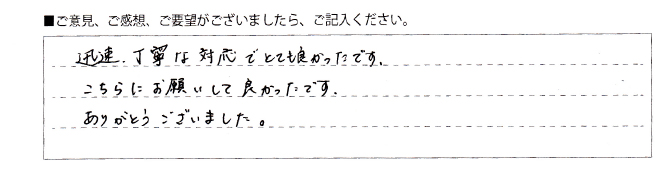 ■ご意見、ご感想、ご要望がございましたら、ご記入ください。
迅速、丁寧な対応でとても良かったです。
こちらにお願いして良かったです。
ありがとうございました。